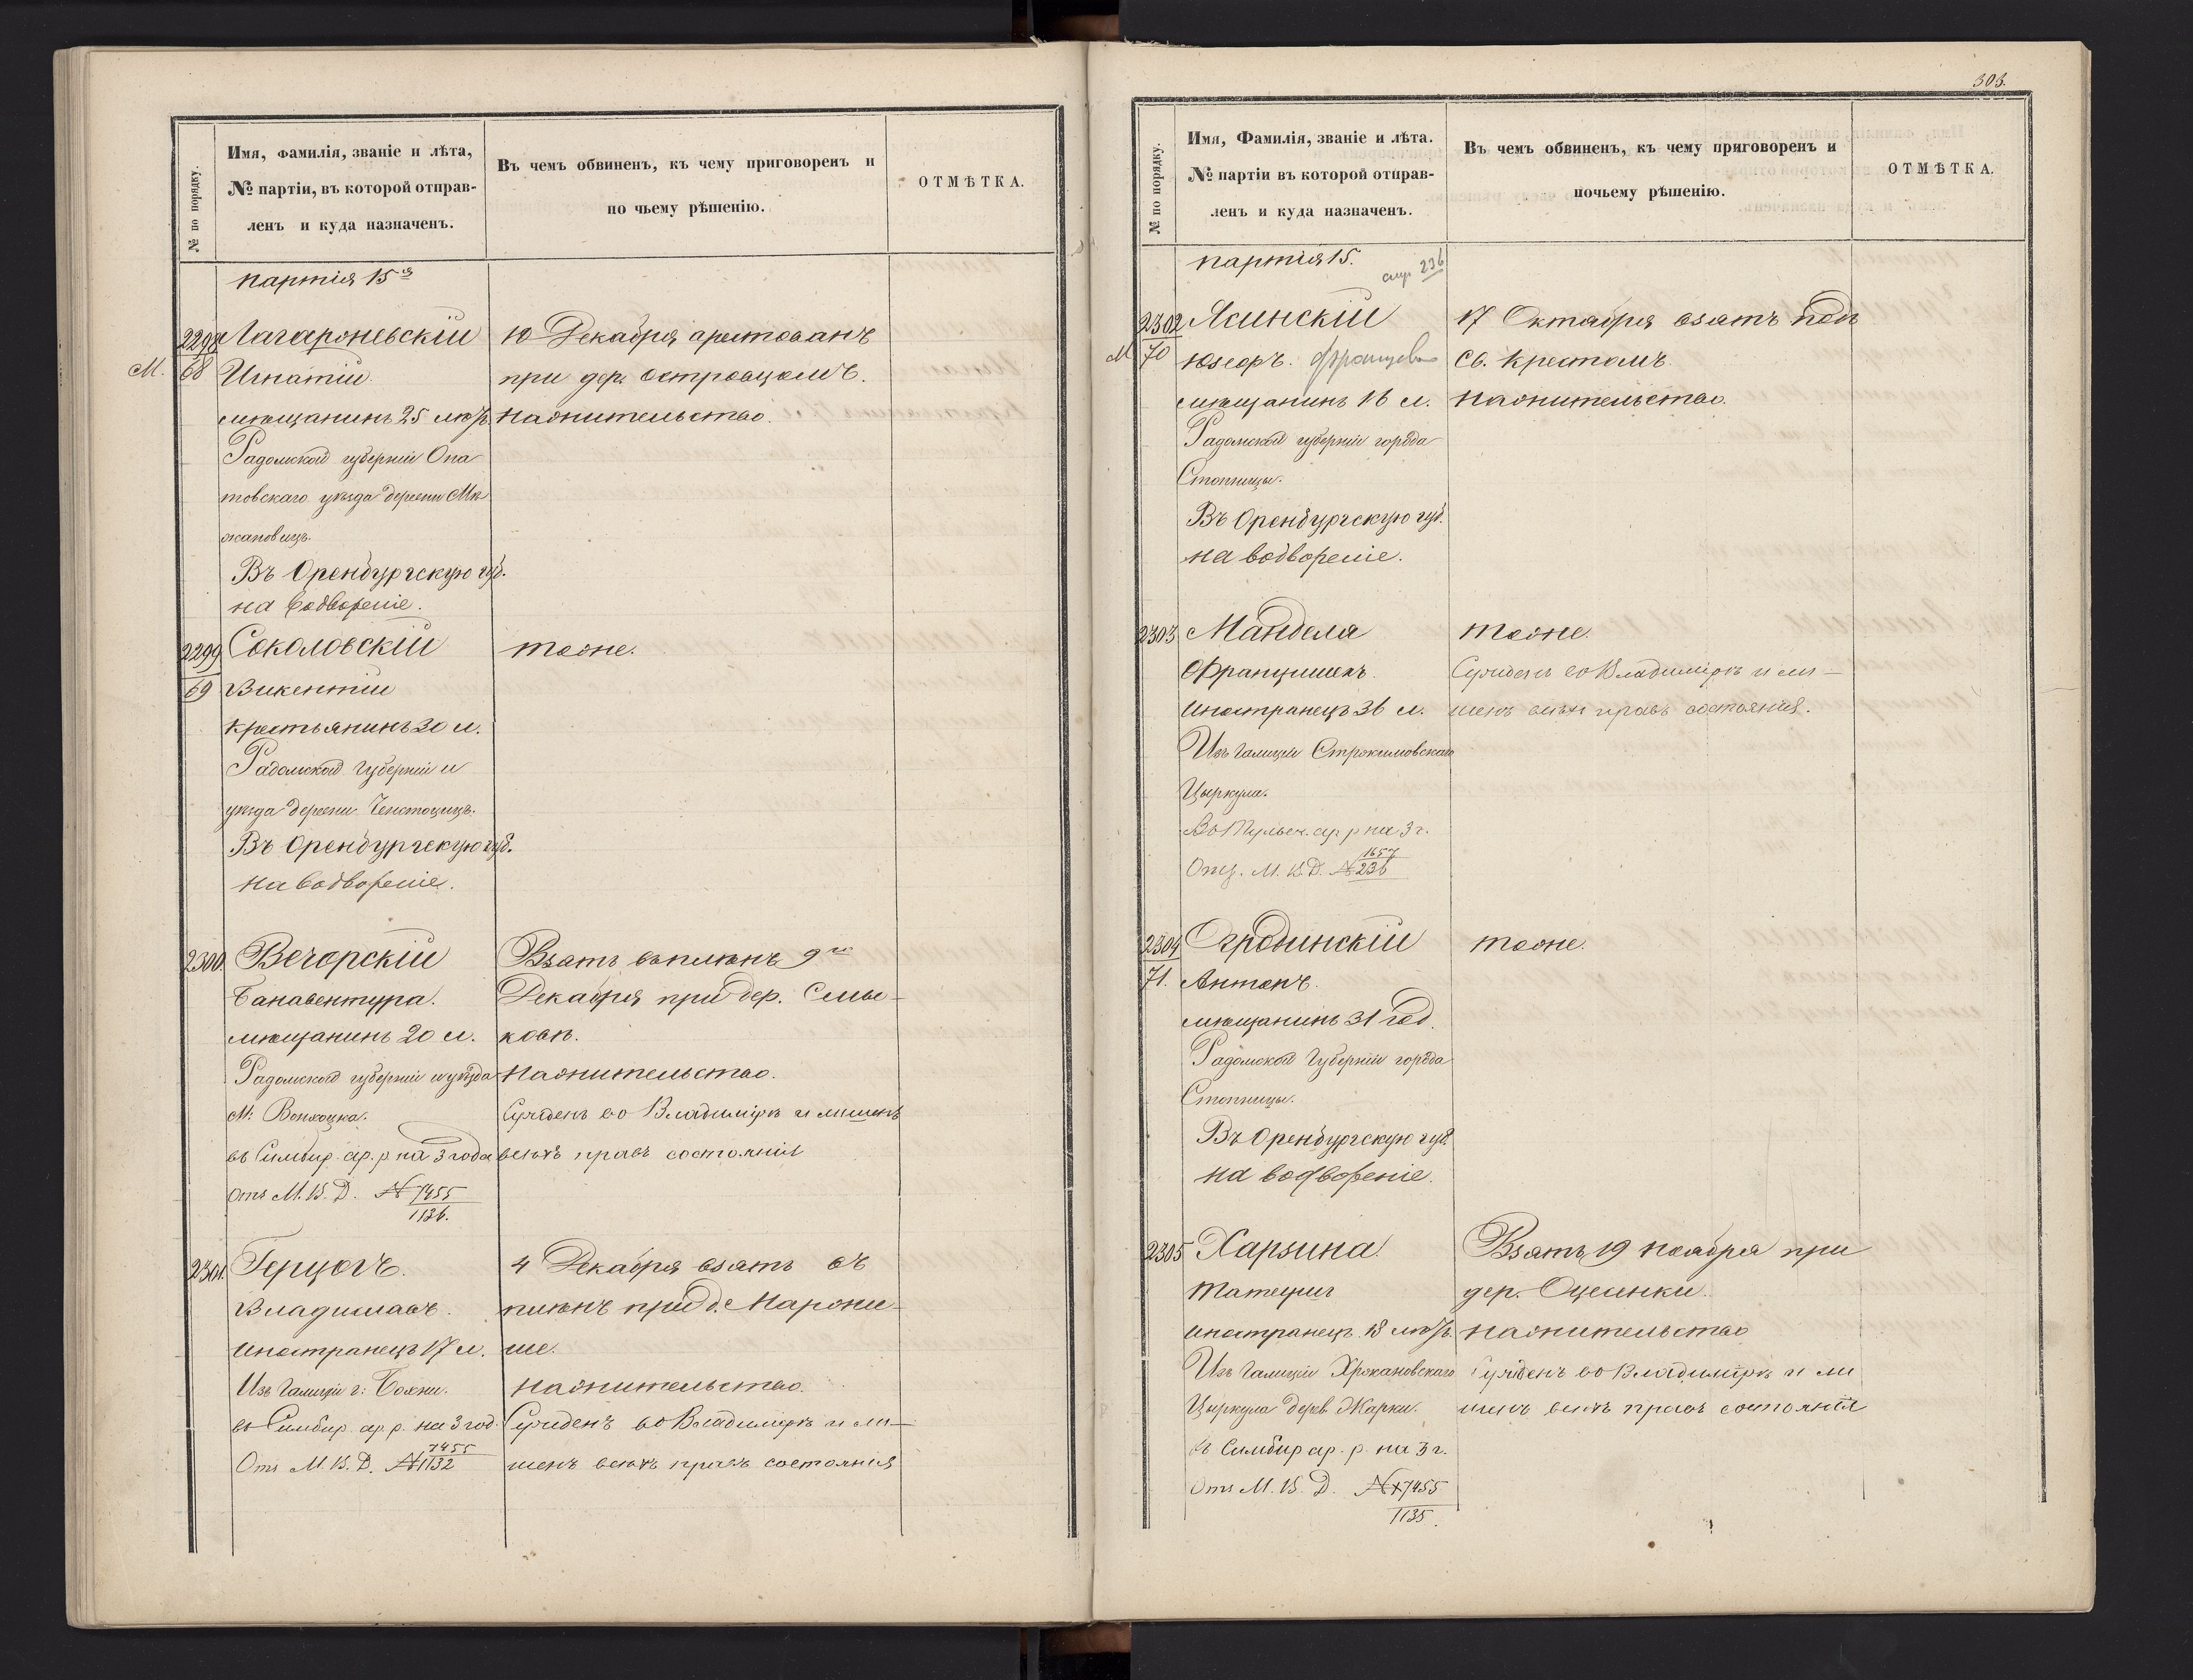 № по порядку.
Имя, фамилія, званіе и лѣта,
№ партіи, въ которой отправ-
ленъ и куда назначенъ.
Въ чемъ обвиненъ, къ чему приговоренъ и
по чьему рѣшенію.
ОТМѢТКА.
партія 15я
2298
М. 68
Игнатій
10 Декабря арестованъ
при дер. Островцомъ.
мѣщанинъ 25 лѣтъ.
На жительство.
Радомской губерніи Опа
товскаго уѣзда деревни
Въ Оренбургскую губ.
на водвореніе.
2299 Соколовскій тоже.
69 Викентій
крестьянинъ 30 л.
Радомской Губерніи и
уѣзда деревни Ченстоцицъ.
Въ Оренбургскую губ.
на водвореніе.
2300. Вечорскій Взятъ въ плѣнъ 9го
Бонавентура. Декабря при дер. Смы-
мѣщанинъ 20 л. ковѣ.
Радомской губерніи и уѣзда На жительство.
М: Вонхоцка. Сужденъ во Владимірѣ и лишенъ
въ Симбир. ар. р. на 3 года всѣхъ правъ состоянія
отъ М. В. Д. № 7455
1136.
2301. Герцогъ. 4 Декабря взятъ въ
Владиславъ. плѣнъ при д. Марони-
иностранецъ 17 л. ше.
Изъ Галиціи г: Бохни. на жительство.
въ Симбир. ар. р. на 3 год. Сужденъ во Владимірѣ и ли-
7455
Отъ М. В. Д. №1132 шенъ всѣхъ правъ состоянія
303.
№ по порядку.
Имя, Фамилія, званіе и лѣта.
№ партіи въ которой отправ-
ленъ и куда назначенъ.
Въ чемъ обвиненъ, къ чему приговоренъ и
почьему рѣшенію.
ОТМѢТКА.
партія 15.
236
2302 Ясинскій 17 Октября взятъ подъ
М 70 Юзефъ. Францов Св. Крестомъ.
мѣщанинъ 16 л. На жительство.
Радомской губерніи города
Стопницы.
Въ Оренбургскую губ.
на водвореніе.
2303 Манделя тоже.
Францишекъ. Сужденъ во Владимірѣ и ли-
Иностранецъ 36 л. шенъ всѣхъ правъ состоянія.
Изъ Галиціи
Циркула.
Въ Тульск. ар. р на 3 г.
1657
Отъ. М. В. Д. №236
2304 Огродинскій тоже.
71. Антонъ.
мѣщанинъ 31 год.
Радомской Губерніи города
Стопницы.
Въ Оренбургскую губ.
на водвореніе.
2305 Харзина Взятъ 19 ноября при
Матеушъ дер. Оцесенки.
иностранецъ. 18 лѣтъ. на жительство
Изъ Галиціи Хржановскаго Сужденъ во Владимірѣ и ли
Циркула дерев. Жарки. шенъ всѣхъ правъ состоянія
въ Симбир ар. р. на 3 г.
Отъ М. В. Д. № 7455
1135.